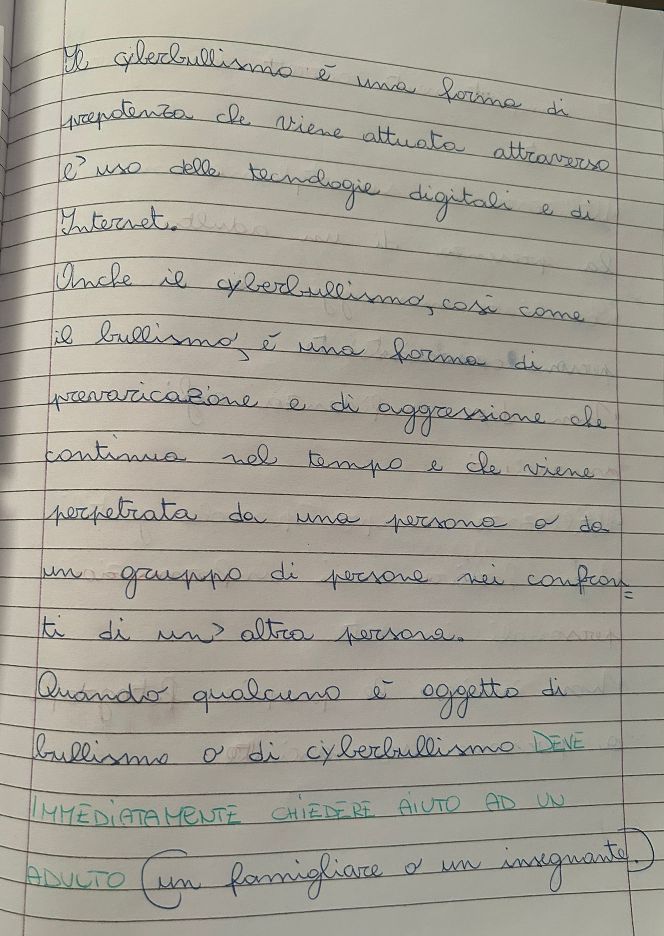 Il cyberbullismo è una forma di
prepotenza che viene attuata attraverso
l'uso delle tecnologie digitali e di
Internet.
Anche il cyberbullismo, così come
il bullismo, è una forma di
prevaricazione e di aggressione che
continua nel tempo e che viene
perpetrata da una persona o da
un gruppo di persone nei confron=
ti di un' altra persona.
Quando qualcuno è oggetto di
bullismo o di cyberbullismo DEVE
IMMEDIATAMENTE CHIEDERE AIUTO AD UN
ADULTO (un famigliare o un insegnante.)